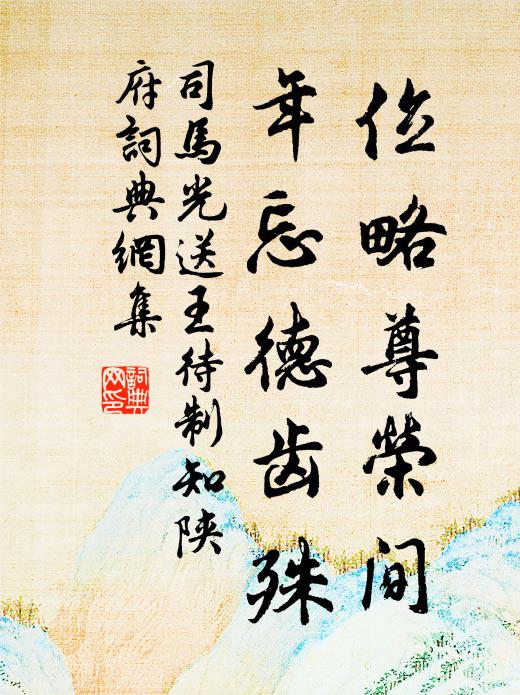 位略尊荣间
年忘德齿殊
司馬光送王待制知陕
府詞典網集
詞典
网印